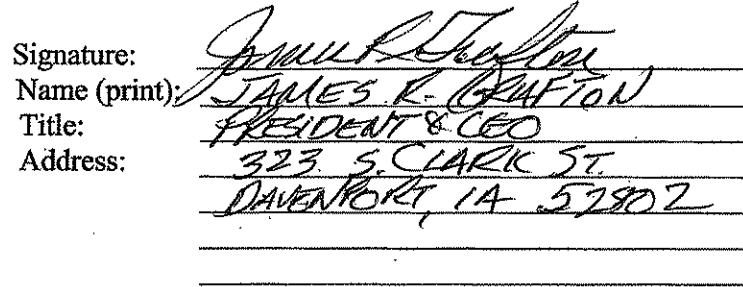 Signature: James R Grafton
Name (print): JAMES R. GRAFTON
Title: PRESIDENT & CEO
Address: 323 S. CLARK ST.
DAVENPORT, IA 52802